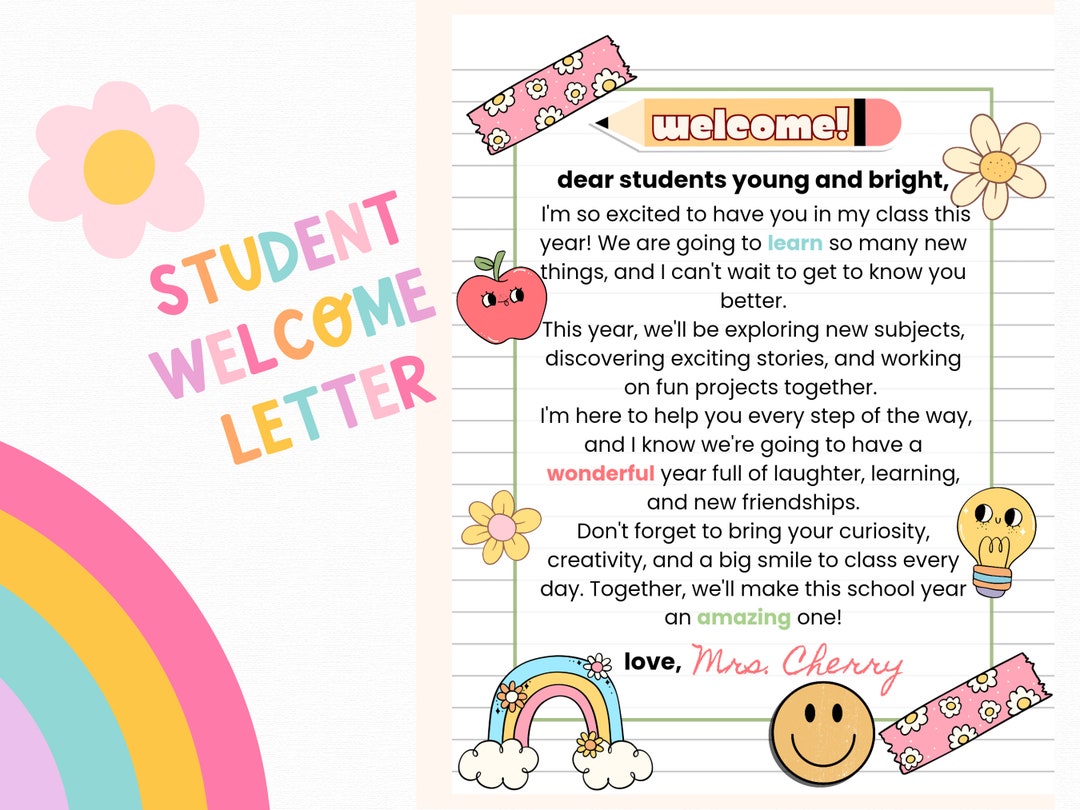 STUDENT
WELCOME
LETTER
welcome!
dear students young and bright,
I'm so excited to have you in my class this
year! We are going to learn so many new
things, and I can't wait to get to know you
better.
This year, we'll be exploring new subjects,
discovering exciting stories, and working
on fun projects together.
I'm here to help you every step of the way,
and I know we're going to have a
wonderful year full of laughter, learning,
and new friendships.
Don't forget to bring your curiosity,
creativity, and a big smile to class every
day. Together, we'll make this school year
an amazing one!
love, Mrs. Cherry